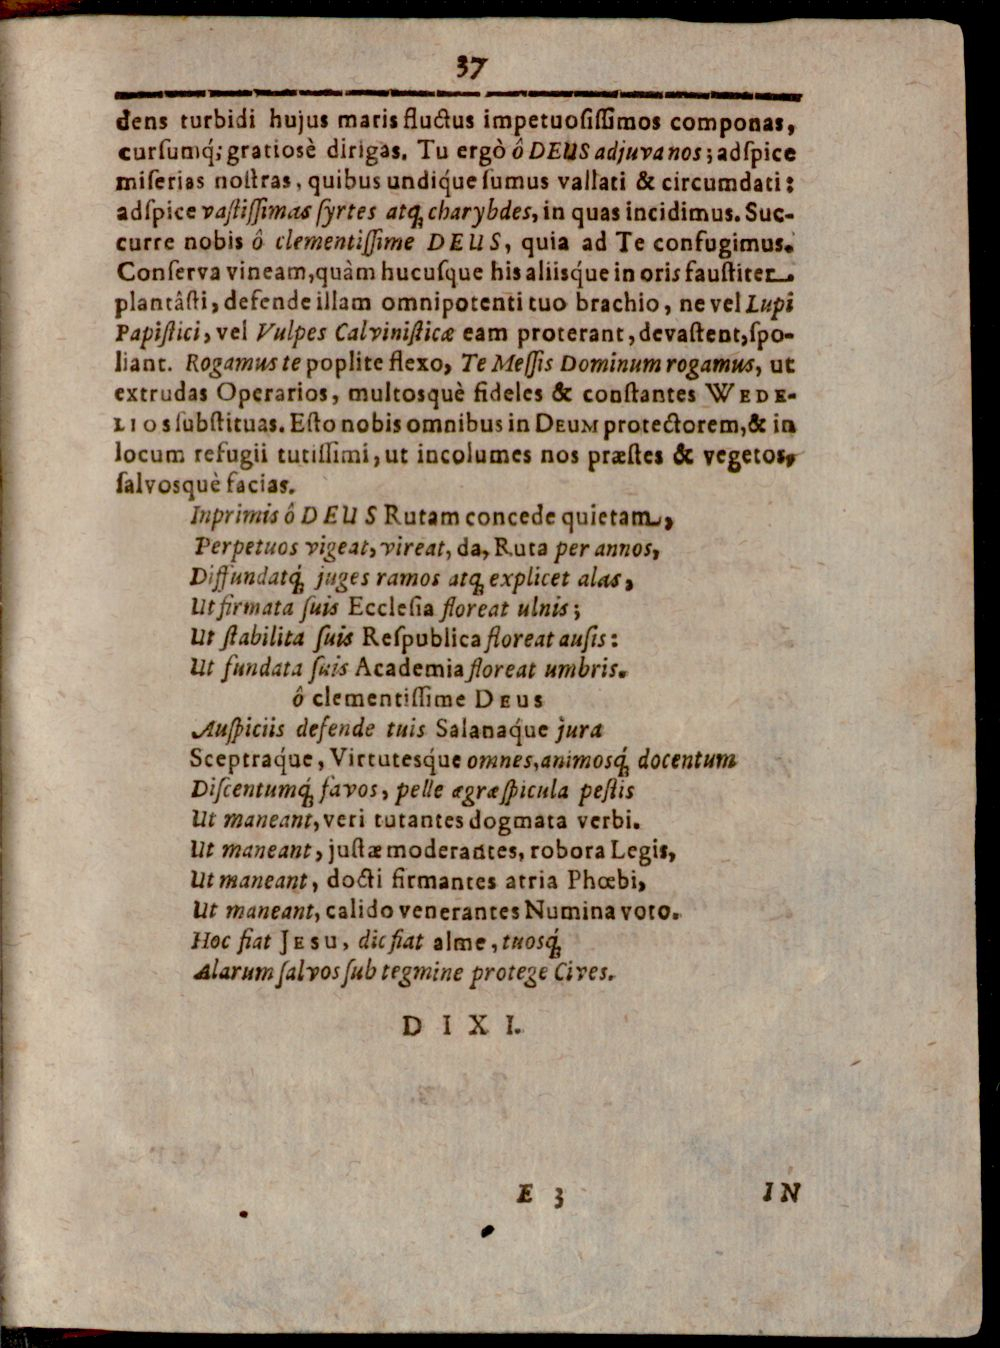 37
dens turbidi hujus maris fluctus impetuosiſſimos componas,
curſumq́; gratiosè dirigas. Tu ergò ô DEUS adjuva nos; adſpice
miſerias noſtras, quibus undique ſumus vallati & circumdati:
adſpice vaſtiſſimas ſyrtes atq́; charybdes, in quas incidimus. Suc-
curre nobis ô clementiſſime DEUS, quia ad Te confugimus.
Conſerva vineam, quàm hucuſque his aliisq́ue in oris fauſtiter
plantâſti, defende illam omnipotenti tuo brachio, ne vel Lupi
Papiſtici, vel Vulpes Calviniſticæ eam proterant, devaſtent, ſpo-
liant. Rogamus te poplite flexo, Te Meſſis Dominum rogamus, ut
extrudas Operarios, multosquè fideles & conſtantes WEDE-
LIOS ſubſtituas. Eſto nobis omnibus in DEUM protectorem, & in
locum refugii tutiſſimi, ut incolumes nos præſtes & vegetos,
ſalvosquè facias.
Inprimis ô DEUS Rutam concede quietam,
Perpetuos vigeat, vireat, da, Ruta per annos,
Diffundatq́; juges ramos atq́; explicet alas,
Ut firmata ſuis Eccleſia floreat ulnis;
Ut ſtabilita ſuis Reſpublica floreat auſis:
Ut fundata ſuis Academia floreat umbris.
ô clementiſſime DEUS
Auſpiciis defende tuis Salanaq́ue jura
Sceptraq́ue, Virtutesq́ue omnes, animosq́; docentum
Diſcentumq́; favos, pelle ægræ ſpicula peſtis
Ut maneant, veri tutantes dogmata verbi.
Ut maneant, juſtæ moderantes, robora Legis,
Ut maneant, docti firmantes atria Phœbi,
Ut maneant, calido venerantes Numina voto.
Hoc fiat JESU, dic fiat alme, tuosq́;
Alarum ſalvos ſub tegmine protege Cives.
DIXI.
E 3
IN